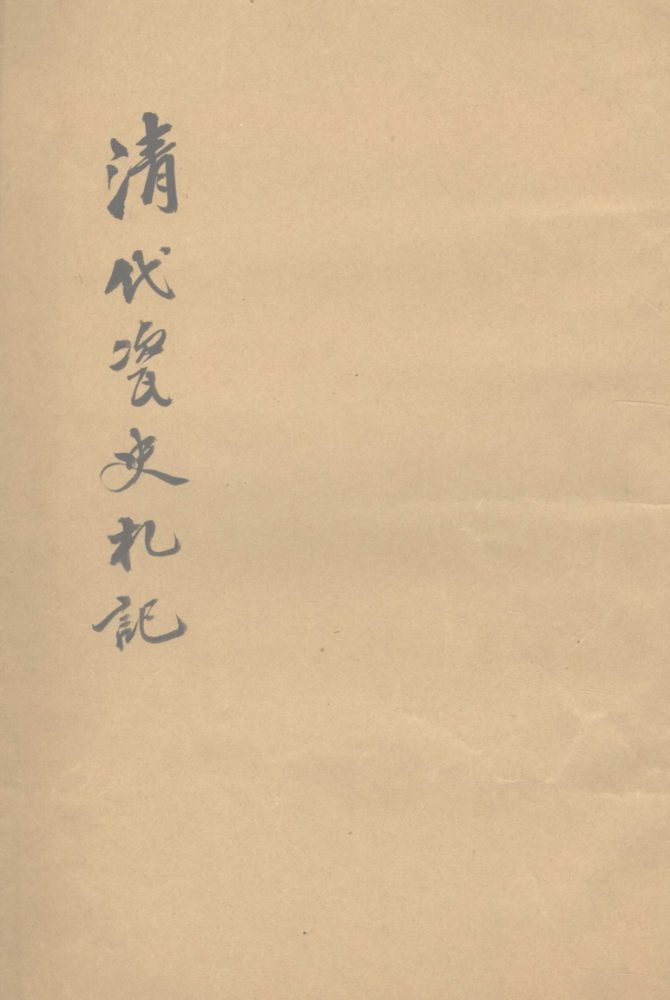 清代瓷史札記